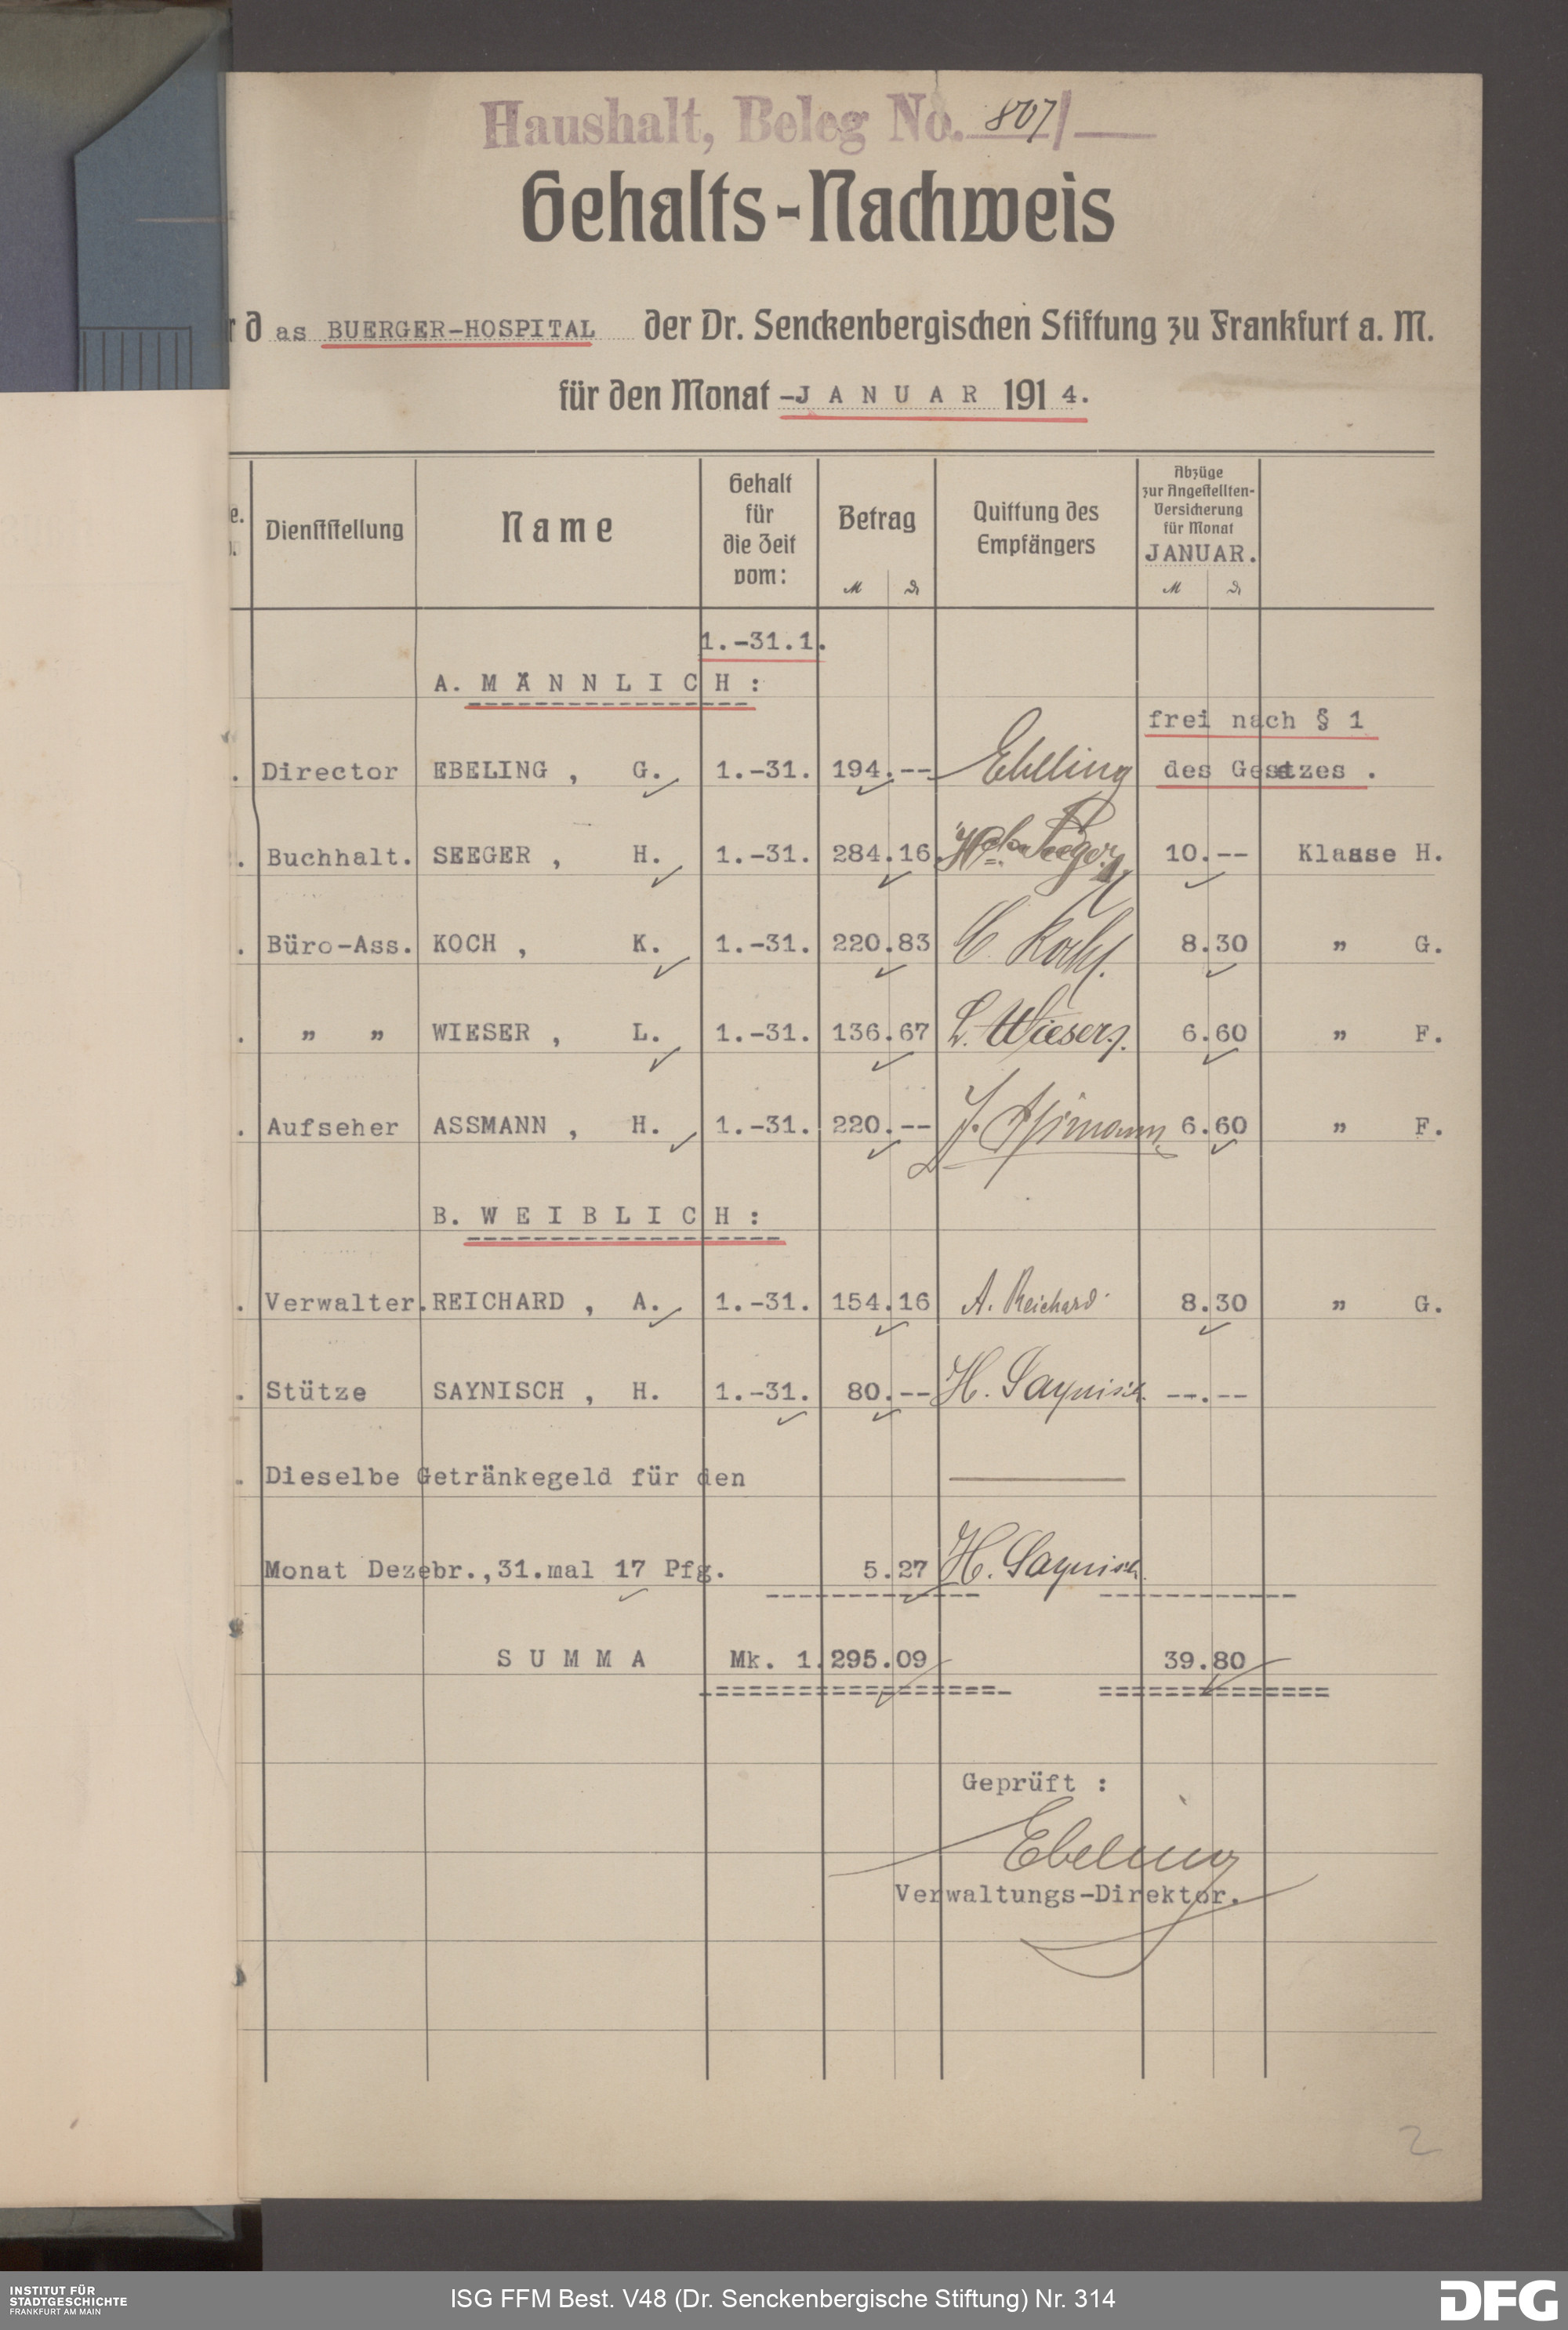 Haushalt, Beleg No. 807/
Gehalts-Nachweis
r d as BUERGER-HOSPITAL der Dr. Senckenbergischen Stiftung zu Frankfurt a. M.
für den Monat -JANUAR 1914.
e. Dienststellung Name Gehalt für die Zeit vom: Betrag Quittung des Empfängers Abzüge zur Angestellten-Versicherung für Monat JANUAR.
M ₰ M ₰
1.-31.1.
A. MÄNNLICH:
frei nach § 1
. Director EBELING , G. 1.-31. 194.-- Ebeling des Gesetzes .
. Buchhalt. SEEGER , H. 1.-31. 284.16 Seeger 10.-- Klasse H.
. Büro-Ass. KOCH , K. 1.-31. 220.83 C. Koch. 8.30 „ G.
. „ „ WIESER , L. 1.-31. 136.67 L. Wieser. 6.60 „ F.
. Aufseher ASSMANN , H. 1.-31. 220.-- H. Assmann 6.60 „ F.
B. WEIBLICH:
. Verwalter. REICHARD , A. 1.-31. 154.16 A. Reichard 8.30 „ G.
. Stütze SAYNISCH , H. 1.-31. 80.-- H. Saynisch --.--
. Dieselbe Getränkegeld für den
Monat Dezebr.,31.mal 17 Pfg. 5.27 H. Saynisch
SUMMA Mk. 1.295.09 39.80
Geprüft :
Ebeling
Verwaltungs-Direktor.
2
INSTITUT FÜR
STADTGESCHICHTE
FRANKFURT AM MAIN
ISG FFM Best. V48 (Dr. Senckenbergische Stiftung) Nr. 314
DFG